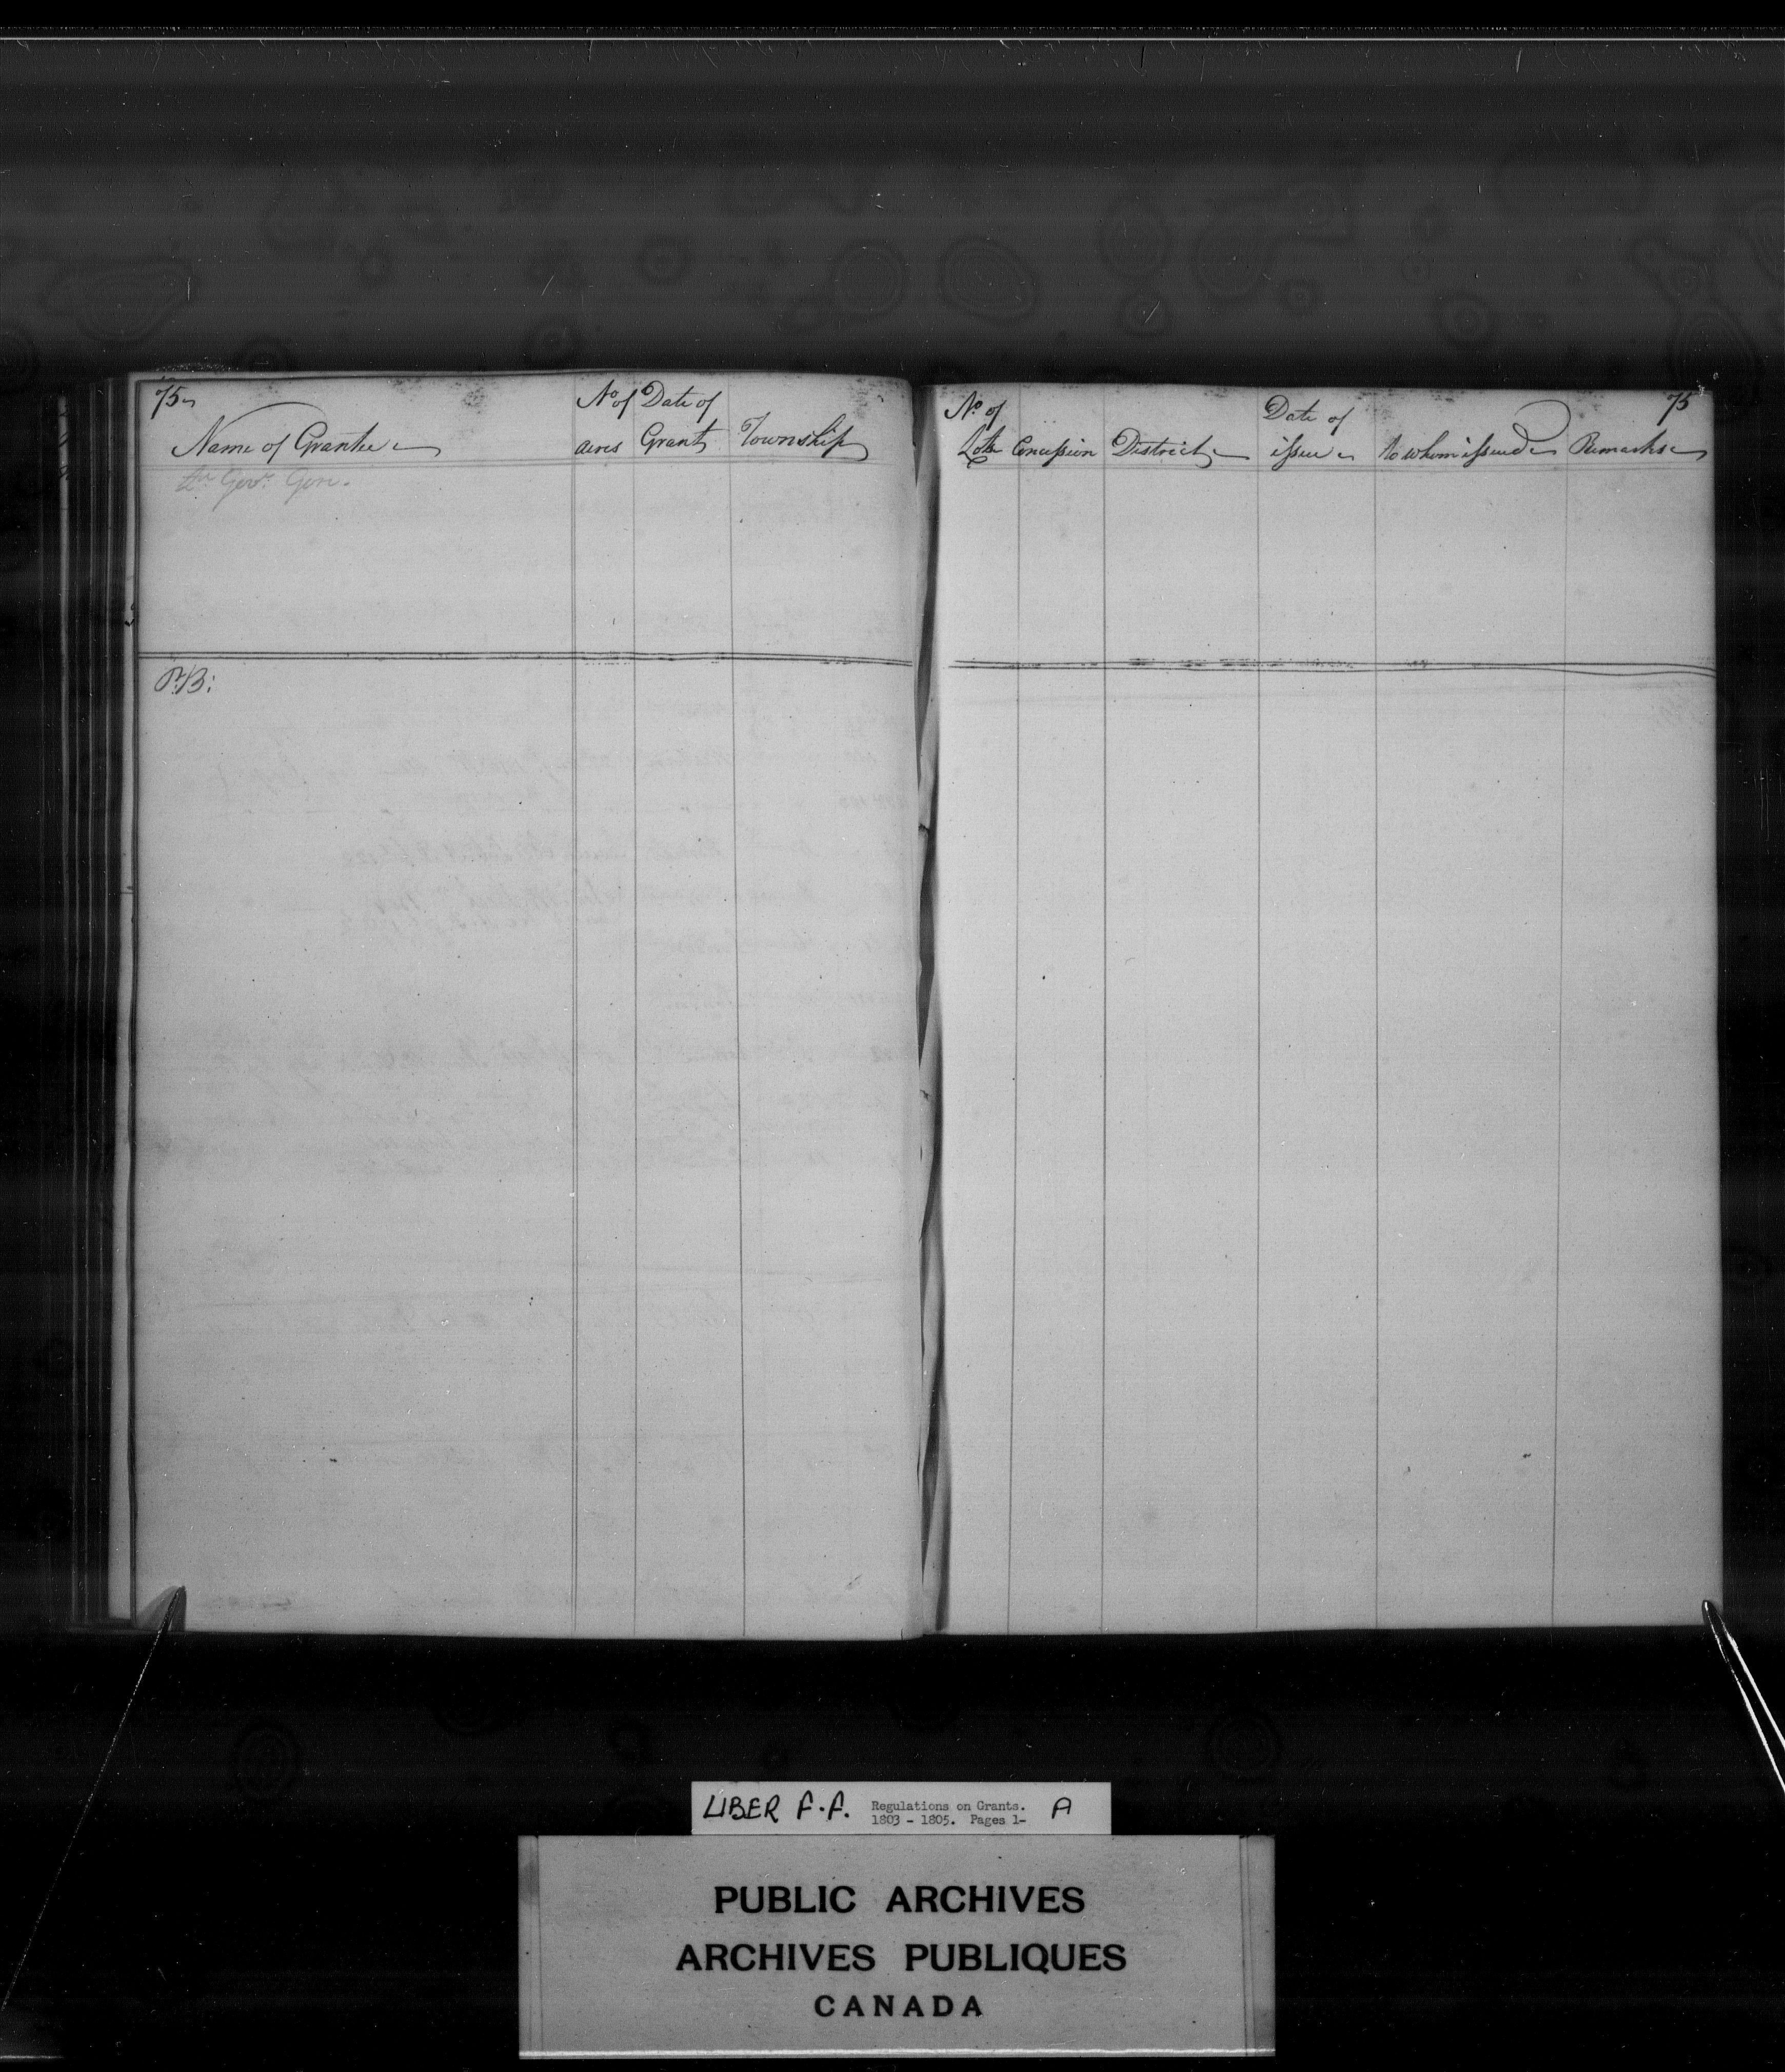 75
Name of Grantee
No of acres
Date of Grant
Township
Govr Gen.
P.B:
75
No of Lots
Concession
District
Date of issue
to whom issued
Remarks
LIBER F.F. Regulations on Grants. A
1803 - 1805. Pages 1-
PUBLIC ARCHIVES
ARCHIVES PUBLIQUES
CANADA